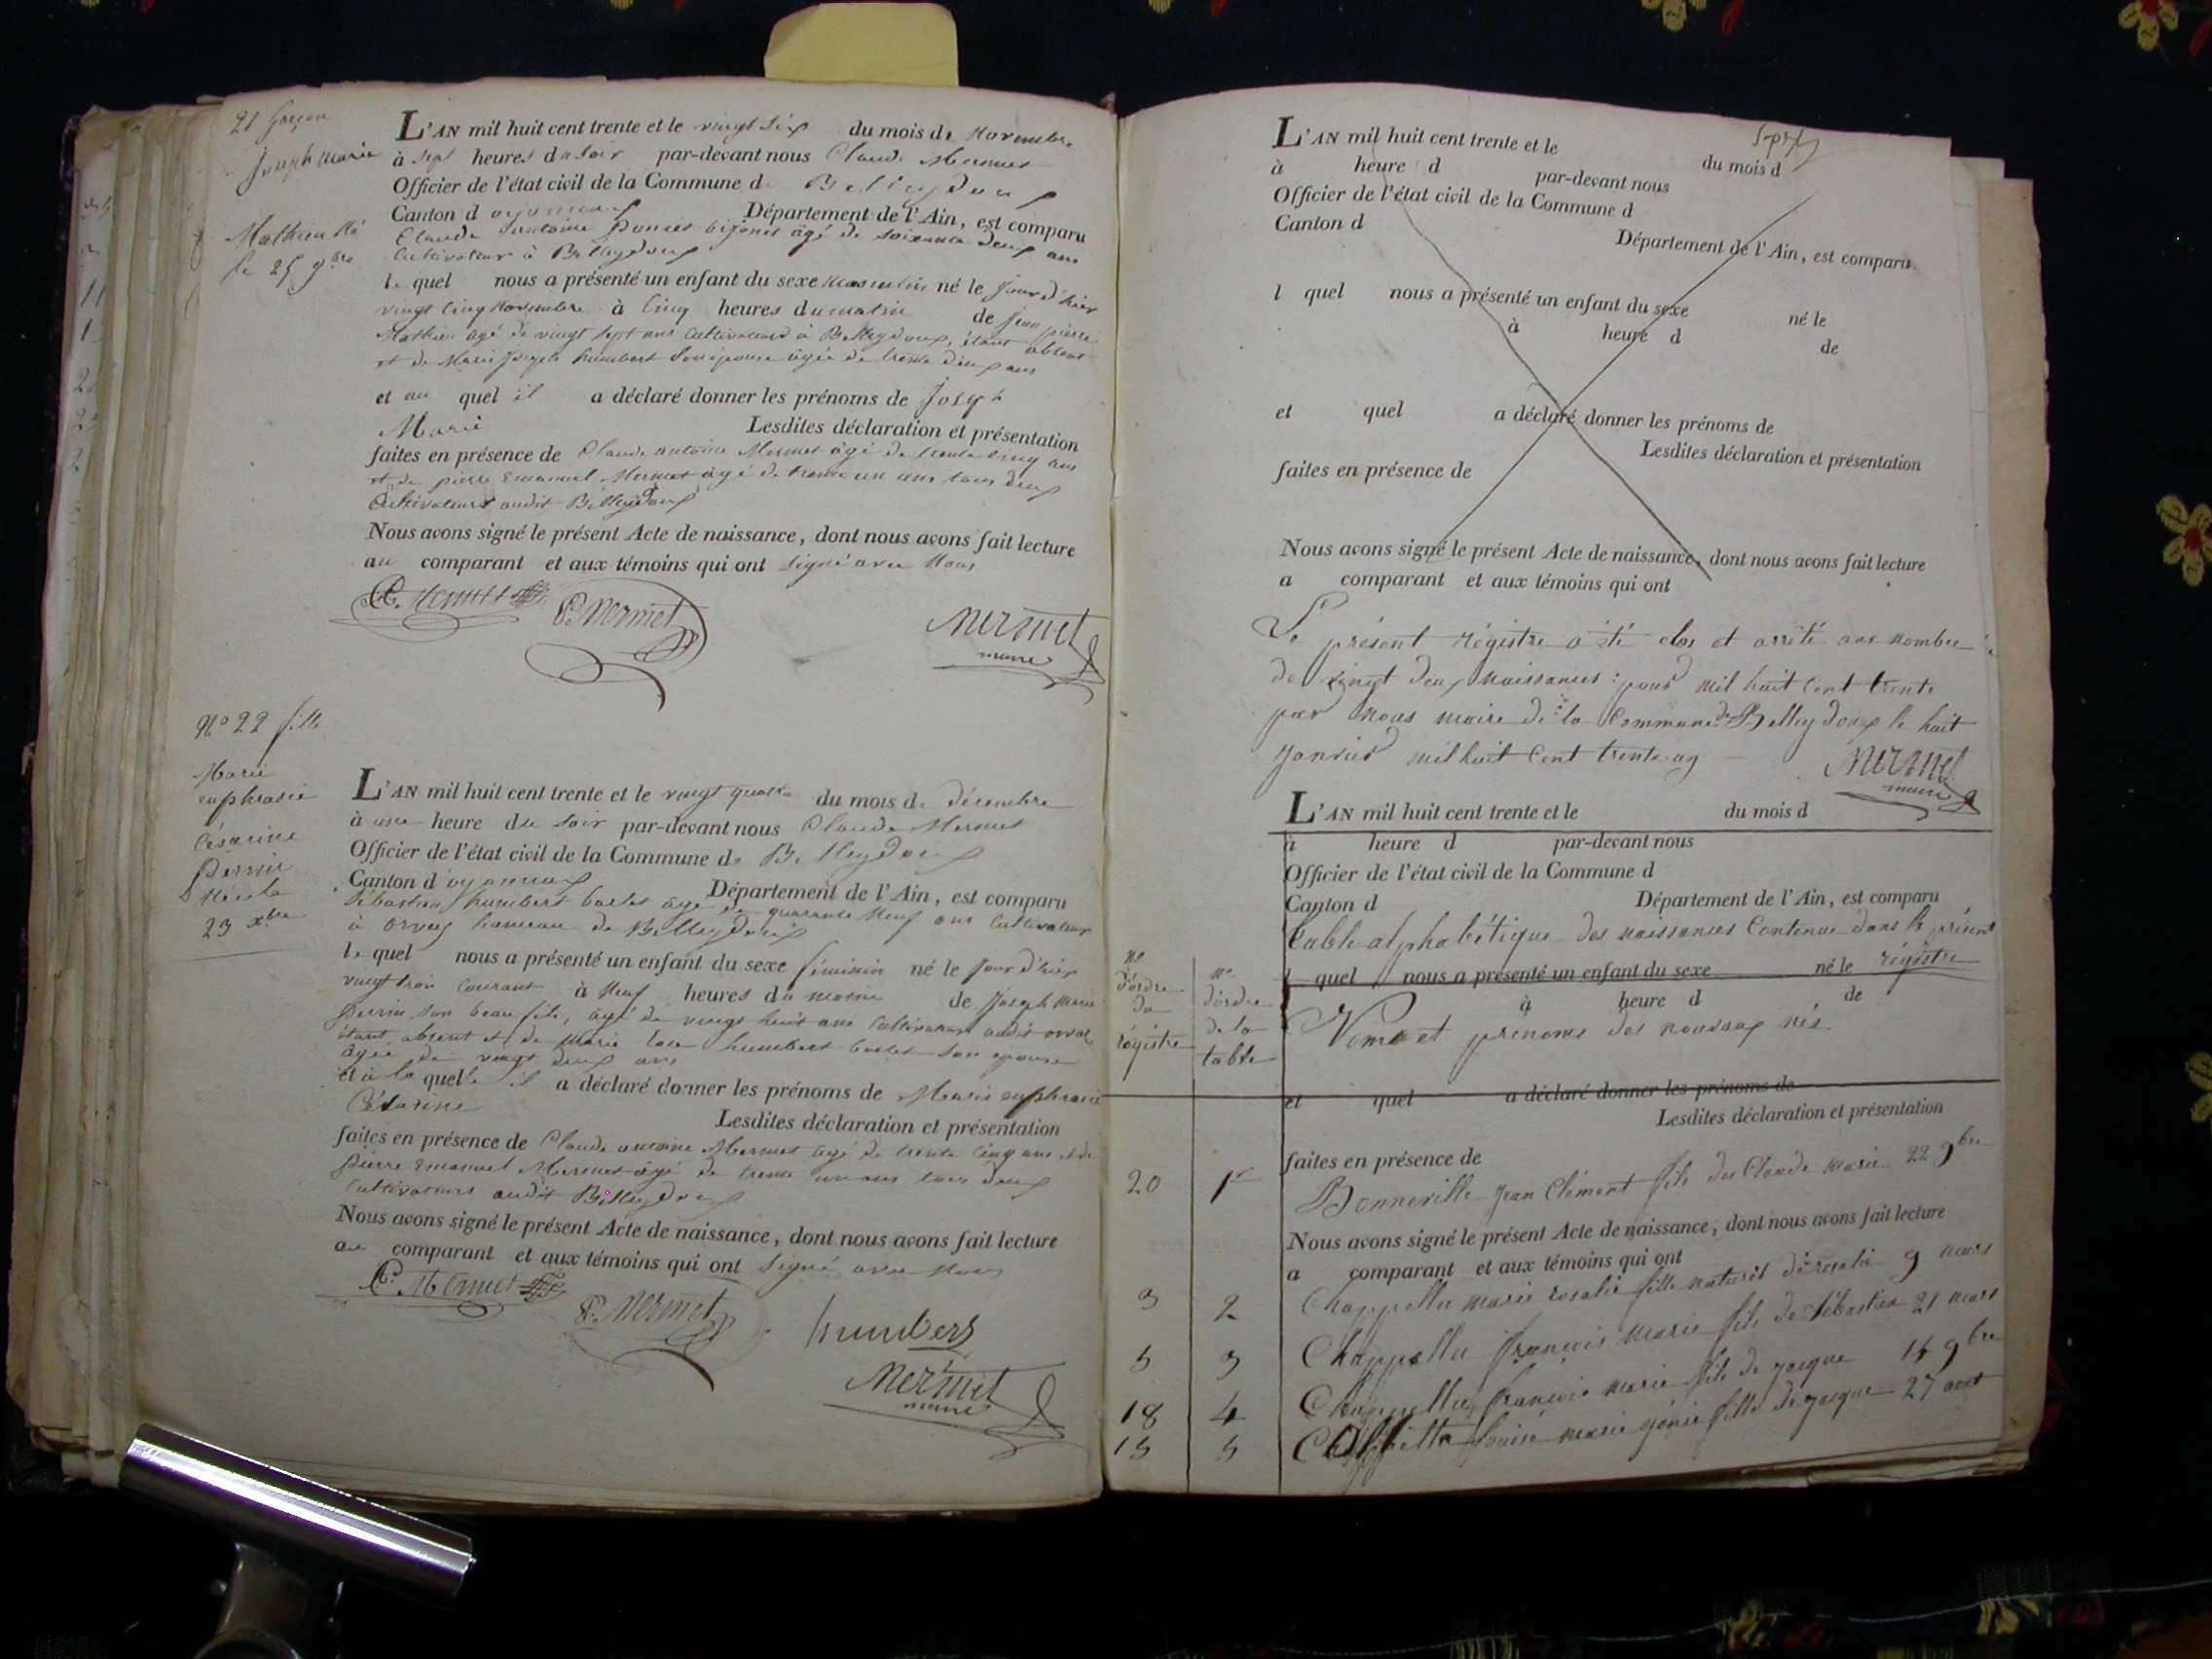 21 garçon
Joseph Marie
Mathieu Né
le 25 9bre
L'AN mil huit cent trente et le vingt six du mois de Novembre
à sept heures du soir par-devant nous Claude Mermet
Officier de l'état civil de la Commune de Belleydoux
Canton d'oyonnax Département de l'Ain, est comparu
Claude antoine Poncet âgé de soixante deux ans
Cultivateur à Belleydoux
lequel nous a présenté un enfant du sexe masculin né le jour d'hier
vingt cinq Novembre à cinq heures du matin de jean pierre
Mathieu âgé de vingt sept ans Cultivateur à Belleydoux, étant absent
et de Marie Joseph humbert son épouse âgée de trente deux ans
et au quel il a déclaré donner les prénoms de Joseph
Marie Lesdites déclaration et présentation
faites en présence de Claude antoine Mermet âgé de trente cinq ans
et de pierre Emanuel Mermet âgé de trente un ans tous deux
Cultivateurs audit Belleydoux
Nous avons signé le présent Acte de naissance, dont nous avons fait lecture
au comparant et aux témoins qui ont signé avec Nous
C. Mermet P. Mermet Mermet
maire
No 22 fille
Marie
euphrasie
Césarine
Perrin
Née le
23 xbre
L'AN mil huit cent trente et le vingt quatre du mois de décembre
à une heure du soir par-devant nous Claude Mermet
Officier de l'état civil de la Commune de Belleydoux
Canton d'oyonnax Département de l'Ain, est comparu
Sébastien humbert barlet âgé de quarante Neuf ans Cultivateur
à orvaz hameau de Belleydoux
lequel nous a présenté un enfant du sexe féminin né le jour d'hier
vingt trois courant à Neuf heures du matin de Joseph Marie
perrin son beau fils, âgé de vingt huit ans Cultivateur audit orvaz
étant absent et de Marie humbert barlet son épouse
âgée de vingt deux ans
et à la quelle il a déclaré donner les prénoms de Marie euphrasie
Césarine Lesdites déclaration et présentation
faites en présence de Claude antoine Mermet âgé de trente cinq ans et de
pierre Emanuel Mermet âgé de trente un ans tous deux
Cultivateurs audit Belleydoux
Nous avons signé le présent Acte de naissance, dont nous avons fait lecture
au comparant et aux témoins qui ont signé avec Nous
C. Mermet P. Mermet humbert
Mermet
maire
Sept
L'AN mil huit cent trente et le du mois d
à heure d par-devant nous
Officier de l'état civil de la Commune d
Canton d Département de l'Ain, est comparu
l quel nous a présenté un enfant du sexe né le
à heure d de
et quel a déclaré donner les prénoms de
Lesdites déclaration et présentation
faites en présence de
Nous avons signé le présent Acte de naissance, dont nous avons fait lecture
a comparant et aux témoins qui ont
Le présent régistre a été clos et arrêté au nombre
de vingt deux naissances: pour mil huit cent trente
par nous maire de la Commune de Belleydoux le huit
Janvier mil huit cent trente un
Mermet
maire
L'AN mil huit cent trente et le du mois d
à heure d par-devant nous
Officier de l'état civil de la Commune d
Canton d Département de l'Ain, est comparu
table alphabétique des naissances Contenue dans le présent
régistre
l quel nous a présenté un enfant du sexe né le
No d'ordre du régistre
no d'ordre de la table
à heure d de
Noms et prénoms des nouveaux nés
et quel a déclaré donner les prénoms de
Lesdites déclaration et présentation
faites en présence de
20 1er Bonneville jean Clément fils de Claude Marie 22 9bre
Nous avons signé le présent Acte de naissance, dont nous avons fait lecture
a comparant et aux témoins qui ont
3 2 Chappellu marie rosalie fille naturel de rosalie 9 mars
5 3 Chappellu françois Marie fils de Sébastien 21 mars
18 4 Chappellu françois marie fils de jacque 14 9bre
15 5 Louise marie génie fille de jacque 27 aout